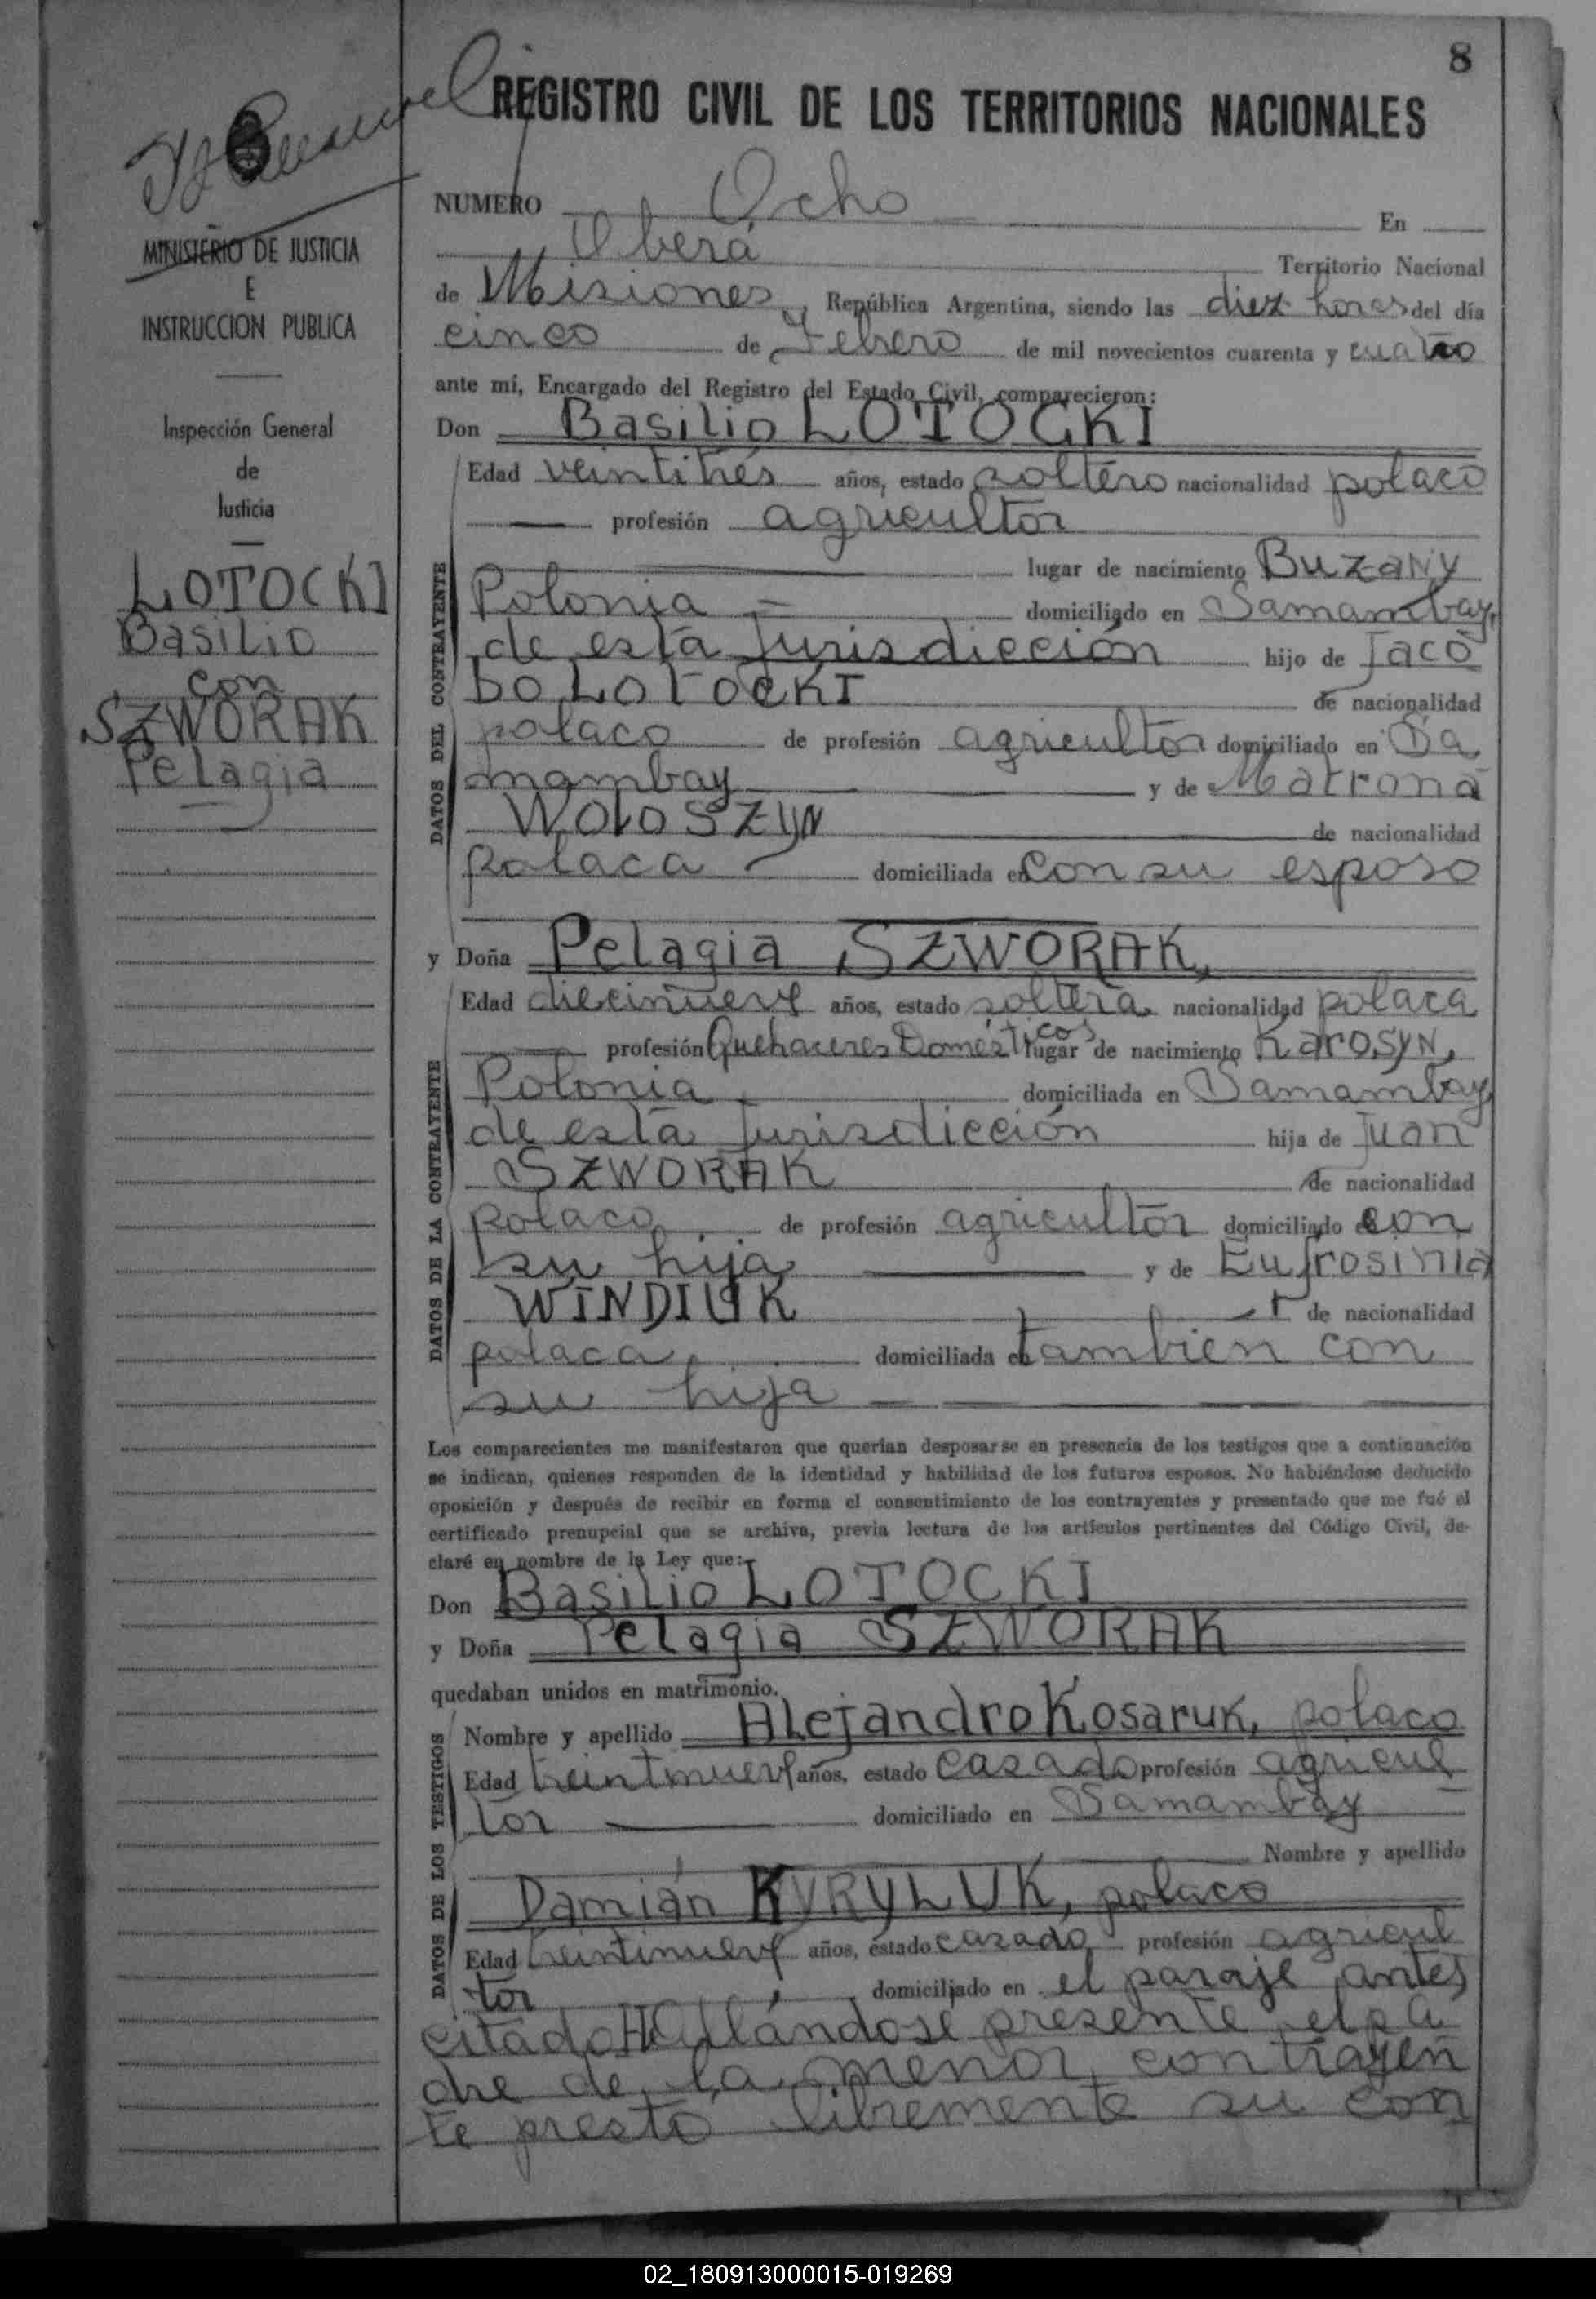 8
REGISTRO CIVIL DE LOS TERRITORIOS NACIONALES
MINISTERIO DE JUSTICIA
E
INSTRUCCION PUBLICA
Inspección General
de
Justicia
LOTOCKI
Basilio
con
SZWORAK
Pelagia
NUMERO Ocho En
Oberá Territorio Nacional
de Misiones, República Argentina, siendo las diez horas del día
cinco de Febrero de mil novecientos cuarenta y cuatro
ante mí, Encargado del Registro del Estado Civil, comparecieron:
Don Basilio LOTOCKI
Edad veintitrés años, estado soltero nacionalidad polaco
profesión agricultor
lugar de nacimiento Buzany
Polonia domiciliado en Samambay,
de esta jurisdicción hijo de Jaco
bo LOTOCKI de nacionalidad
polaco de profesión agricultor domiciliado en Sa
mambay y de Matrona
WOLOSZYN de nacionalidad
polaca domiciliada en con su esposo
DATOS DEL CONTRAYENTE
y Doña Pelagia SZWORAK,
Edad diecinueve años, estado soltera nacionalidad polaca
profesión Quehaceres Domésticos lugar de nacimiento Karosyn,
Polonia domiciliada en Samambay
de esta jurisdicción hija de Juan
SZWORAK de nacionalidad
polaco de profesión agricultor domiciliado en con
su hija y de Eufrosinia
WINDIUK de nacionalidad
polaca, domiciliada en tambien con
su hija
DATOS DE LA CONTRAYENTE
Los comparecientes me manifestaron que querían desposarse en presencia de los testigos que a continuación
se indican, quienes responden de la identidad y habilidad de los futuros esposos. No habiéndose deducido
oposición y después de recibir en forma el consentimiento de los contrayentes y presentado que me fué el
certificado prenupcial que se archiva, previa lectura de los artículos pertinentes del Código Civil, de-
claré en nombre de la Ley que:
Don Basilio LOTOCKI
y Doña Pelagia SZWORAK
quedaban unidos en matrimonio.
Nombre y apellido Alejandro Kosaruk, polaco
Edad treintinueve años, estado casado profesión agricul
tor domiciliado en Samambay
Nombre y apellido
Damián KYRYLUK, polaco
Edad treintinueve años, estado casado profesión agricul
tor domiciliado en el paraje antes
DATOS DE LOS TESTIGOS
citado Hallándose presente el pa
dre de la menor contrayen
te prestó libremente su con
02_180913000015-019269